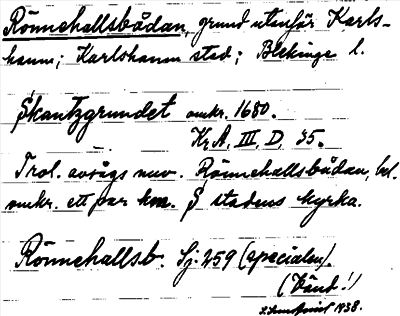 Rönnehallsbådan, grund utanför Karls-
hamn; Karlshamn stad; Blekinge l.
Skantzgrundet omkr. 1680.
Kr.A, III, D, 35.
Trol. avsågs nuv. Rönnehallsbådan, bel.
omkr. ett par km. S stadens kyrka.
Rönnehallsb. Sj: 259 (specialen).
(Vänd!)
1938.